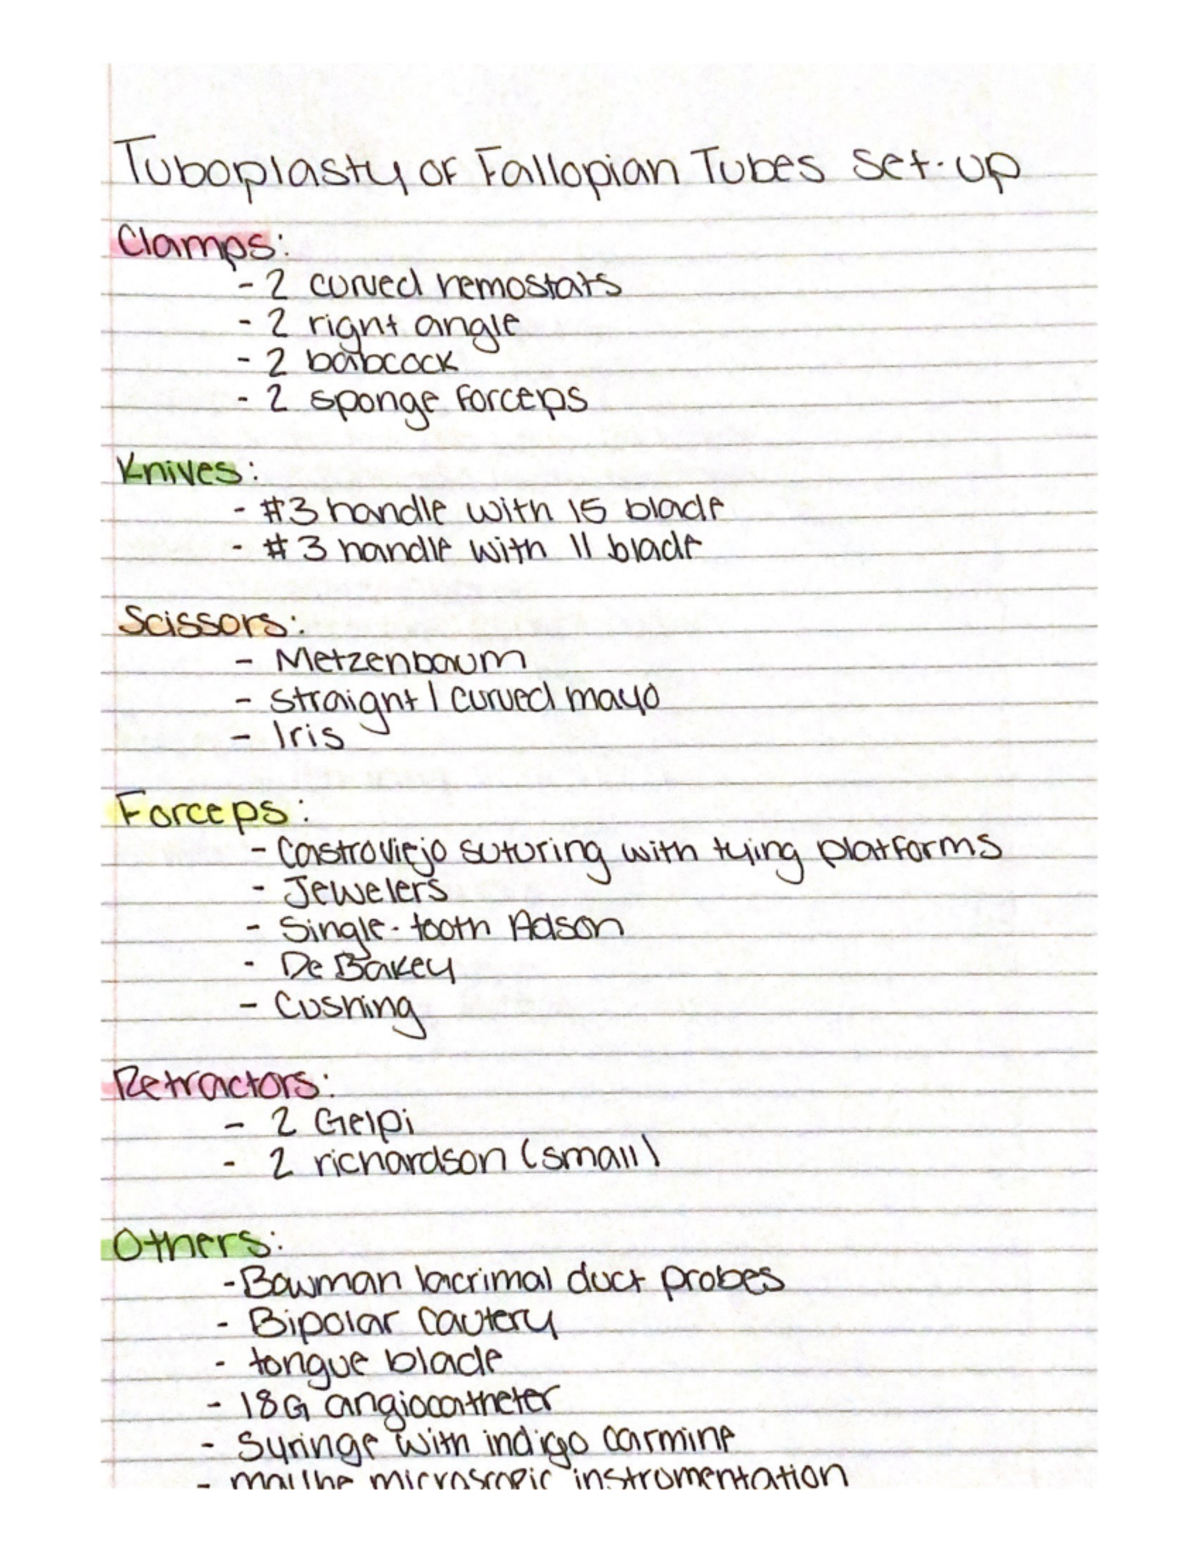 Tuboplasty of Fallopian Tubes Set-up
Clamps:
- 2 curved hemostats
- 2 right angle
- 2 babcock
- 2 sponge forceps
Knives:
- #3 handle with 15 blade
- #3 handle with 11 blade
Scissors:
- Metzenbaum
- Straight / curved mayo
- Iris
Forceps:
- Castroviejo suturing with tying platforms
- Jewelers
- Single-tooth Adson
- De Bakey
- Cushing
Retractors:
- 2 Gelpi
- 2 richardson (small)
Others:
- Bowman lacrimal duct probes
- Bipolar cautery
- tongue blade
- 18G angiocatheter
- Syringe with indigo carmine
- microscopic instrumentation